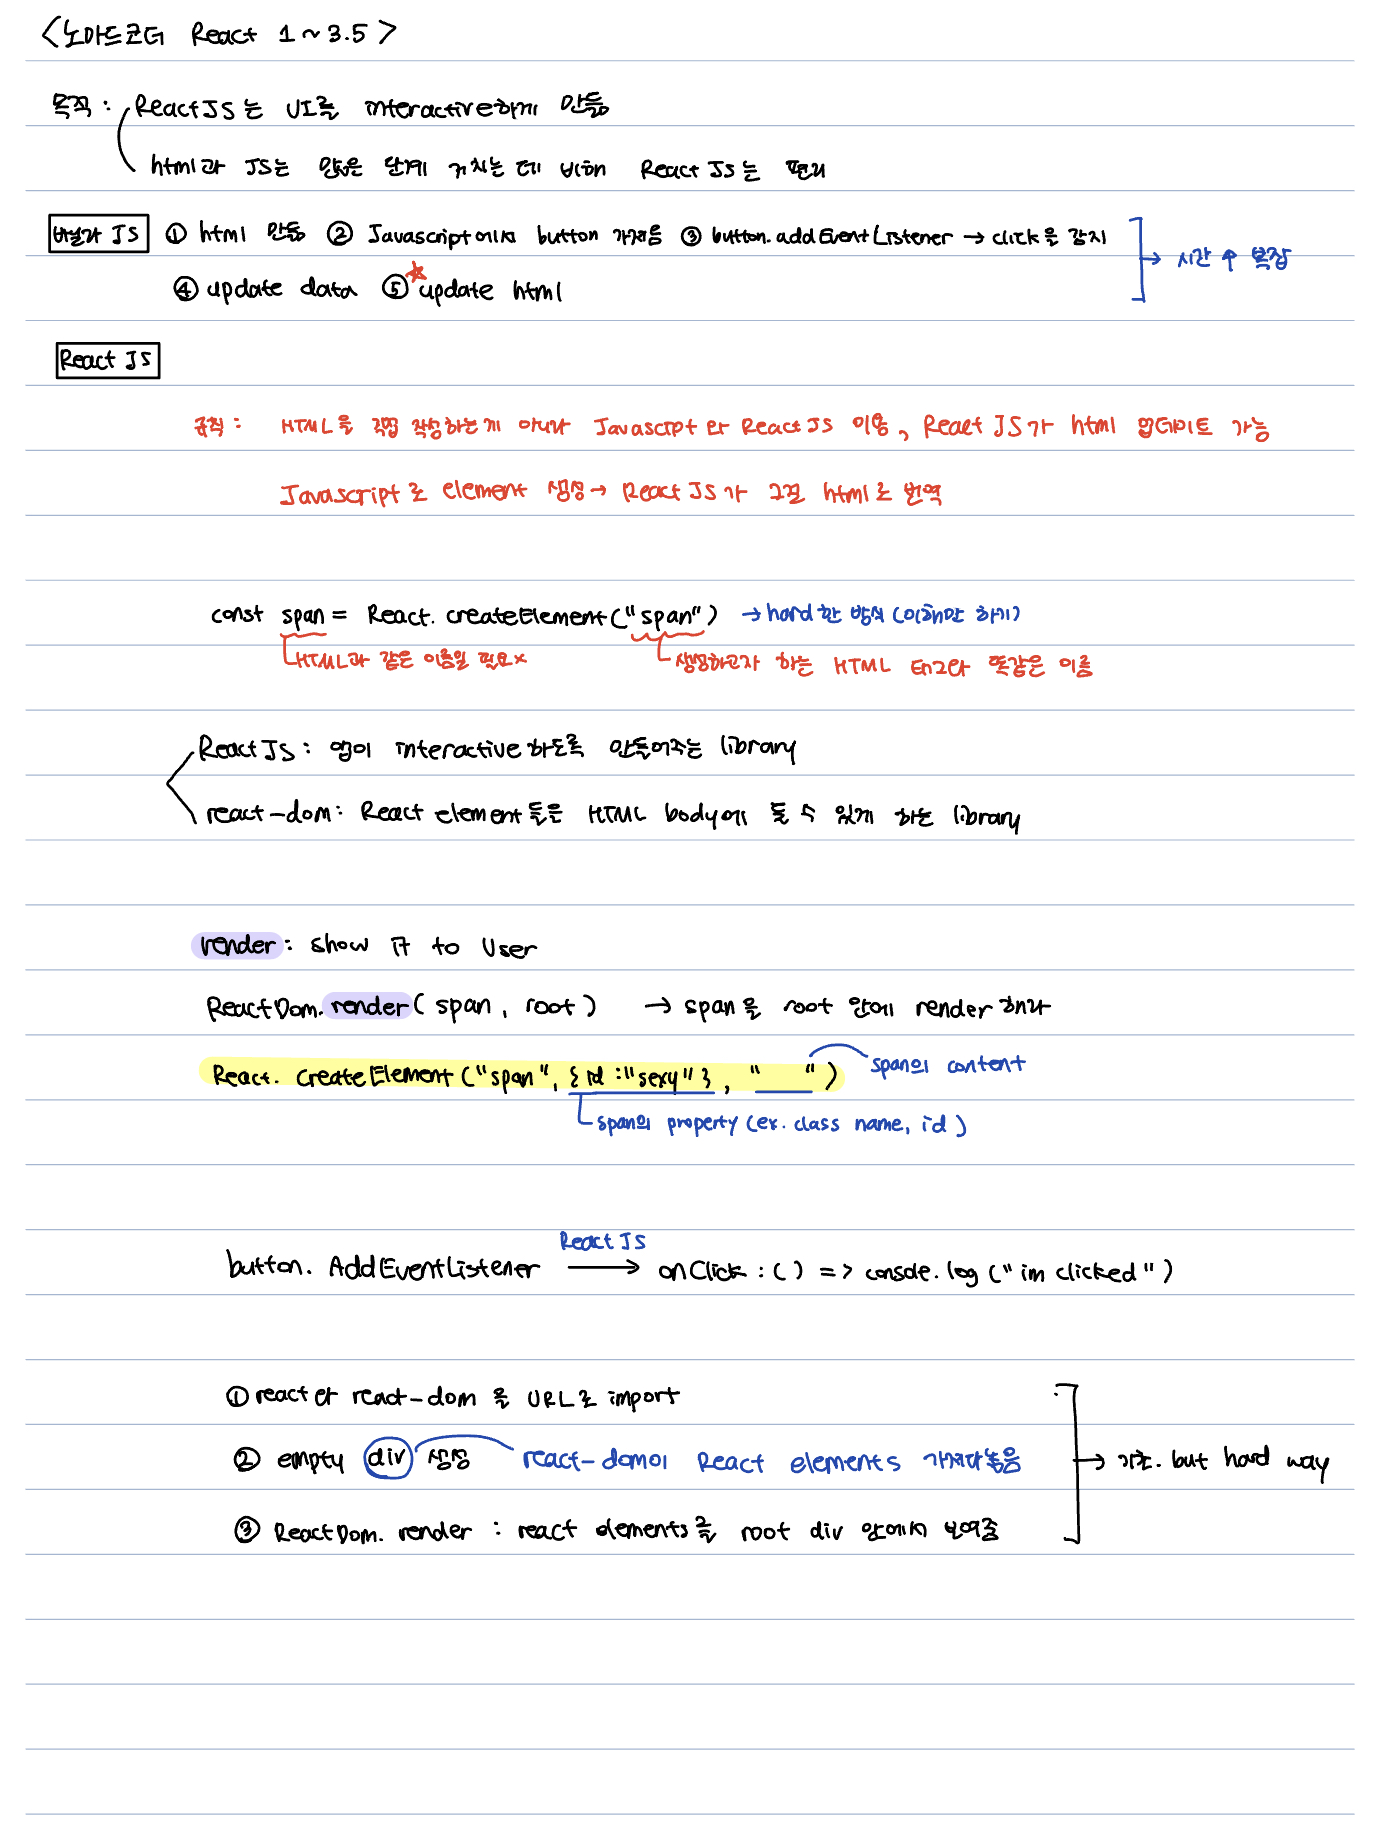 <노마드코더 React 1~3.5>
목적: ReactJS는 UI를 interactive하게 만듦
html과 JS는 많은 단계 거치는 데 비해 React JS는 편리
바닐라 JS ① html 만듦 ② Javascript에서 button 가져옴 ③ button.addEventListener → click을 감지
④ update data ⑤☆update html
→ 시간 ↑ 복잡
React JS
규칙: HTML을 직접 작성하는게 아니라 Javascript와 ReactJS 이용, React JS가 html 업데이트 가능
Javascript로 element 생성 → React JS가 그걸 html로 번역
const span = React. createElement("span") → hard한 방식 (이해만 하기)
HTML과 같은 이름일 필요x
생성하고자 하는 HTML 태그와 똑같은 이름
ReactJS: 앱이 interactive하도록 만들어주는 library
react-dom: React element들은 HTML body에 둘 수 있게 하는 library
render: show it to User
ReactDom.render( span, root) → span을 root 안에 render 한다
React. createElement("span", {id:"sexy"}, "    ")
span의 content
span의 property (ex. class name, id)
button. AddEventListener ReactJS → onClick: () => console.log("im clicked")
① react와 react-dom 을 URL로 import
② empty div 생성 react-dom이 React elements 가져다놓음
③ ReactDom. render : react elements를 root div 안에서 보여줌
→ 기초. but hard way